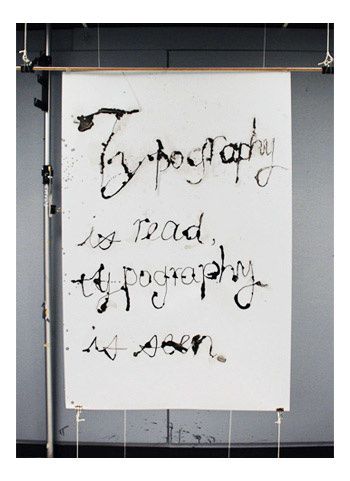 Typography
is read,
typography
is seen.